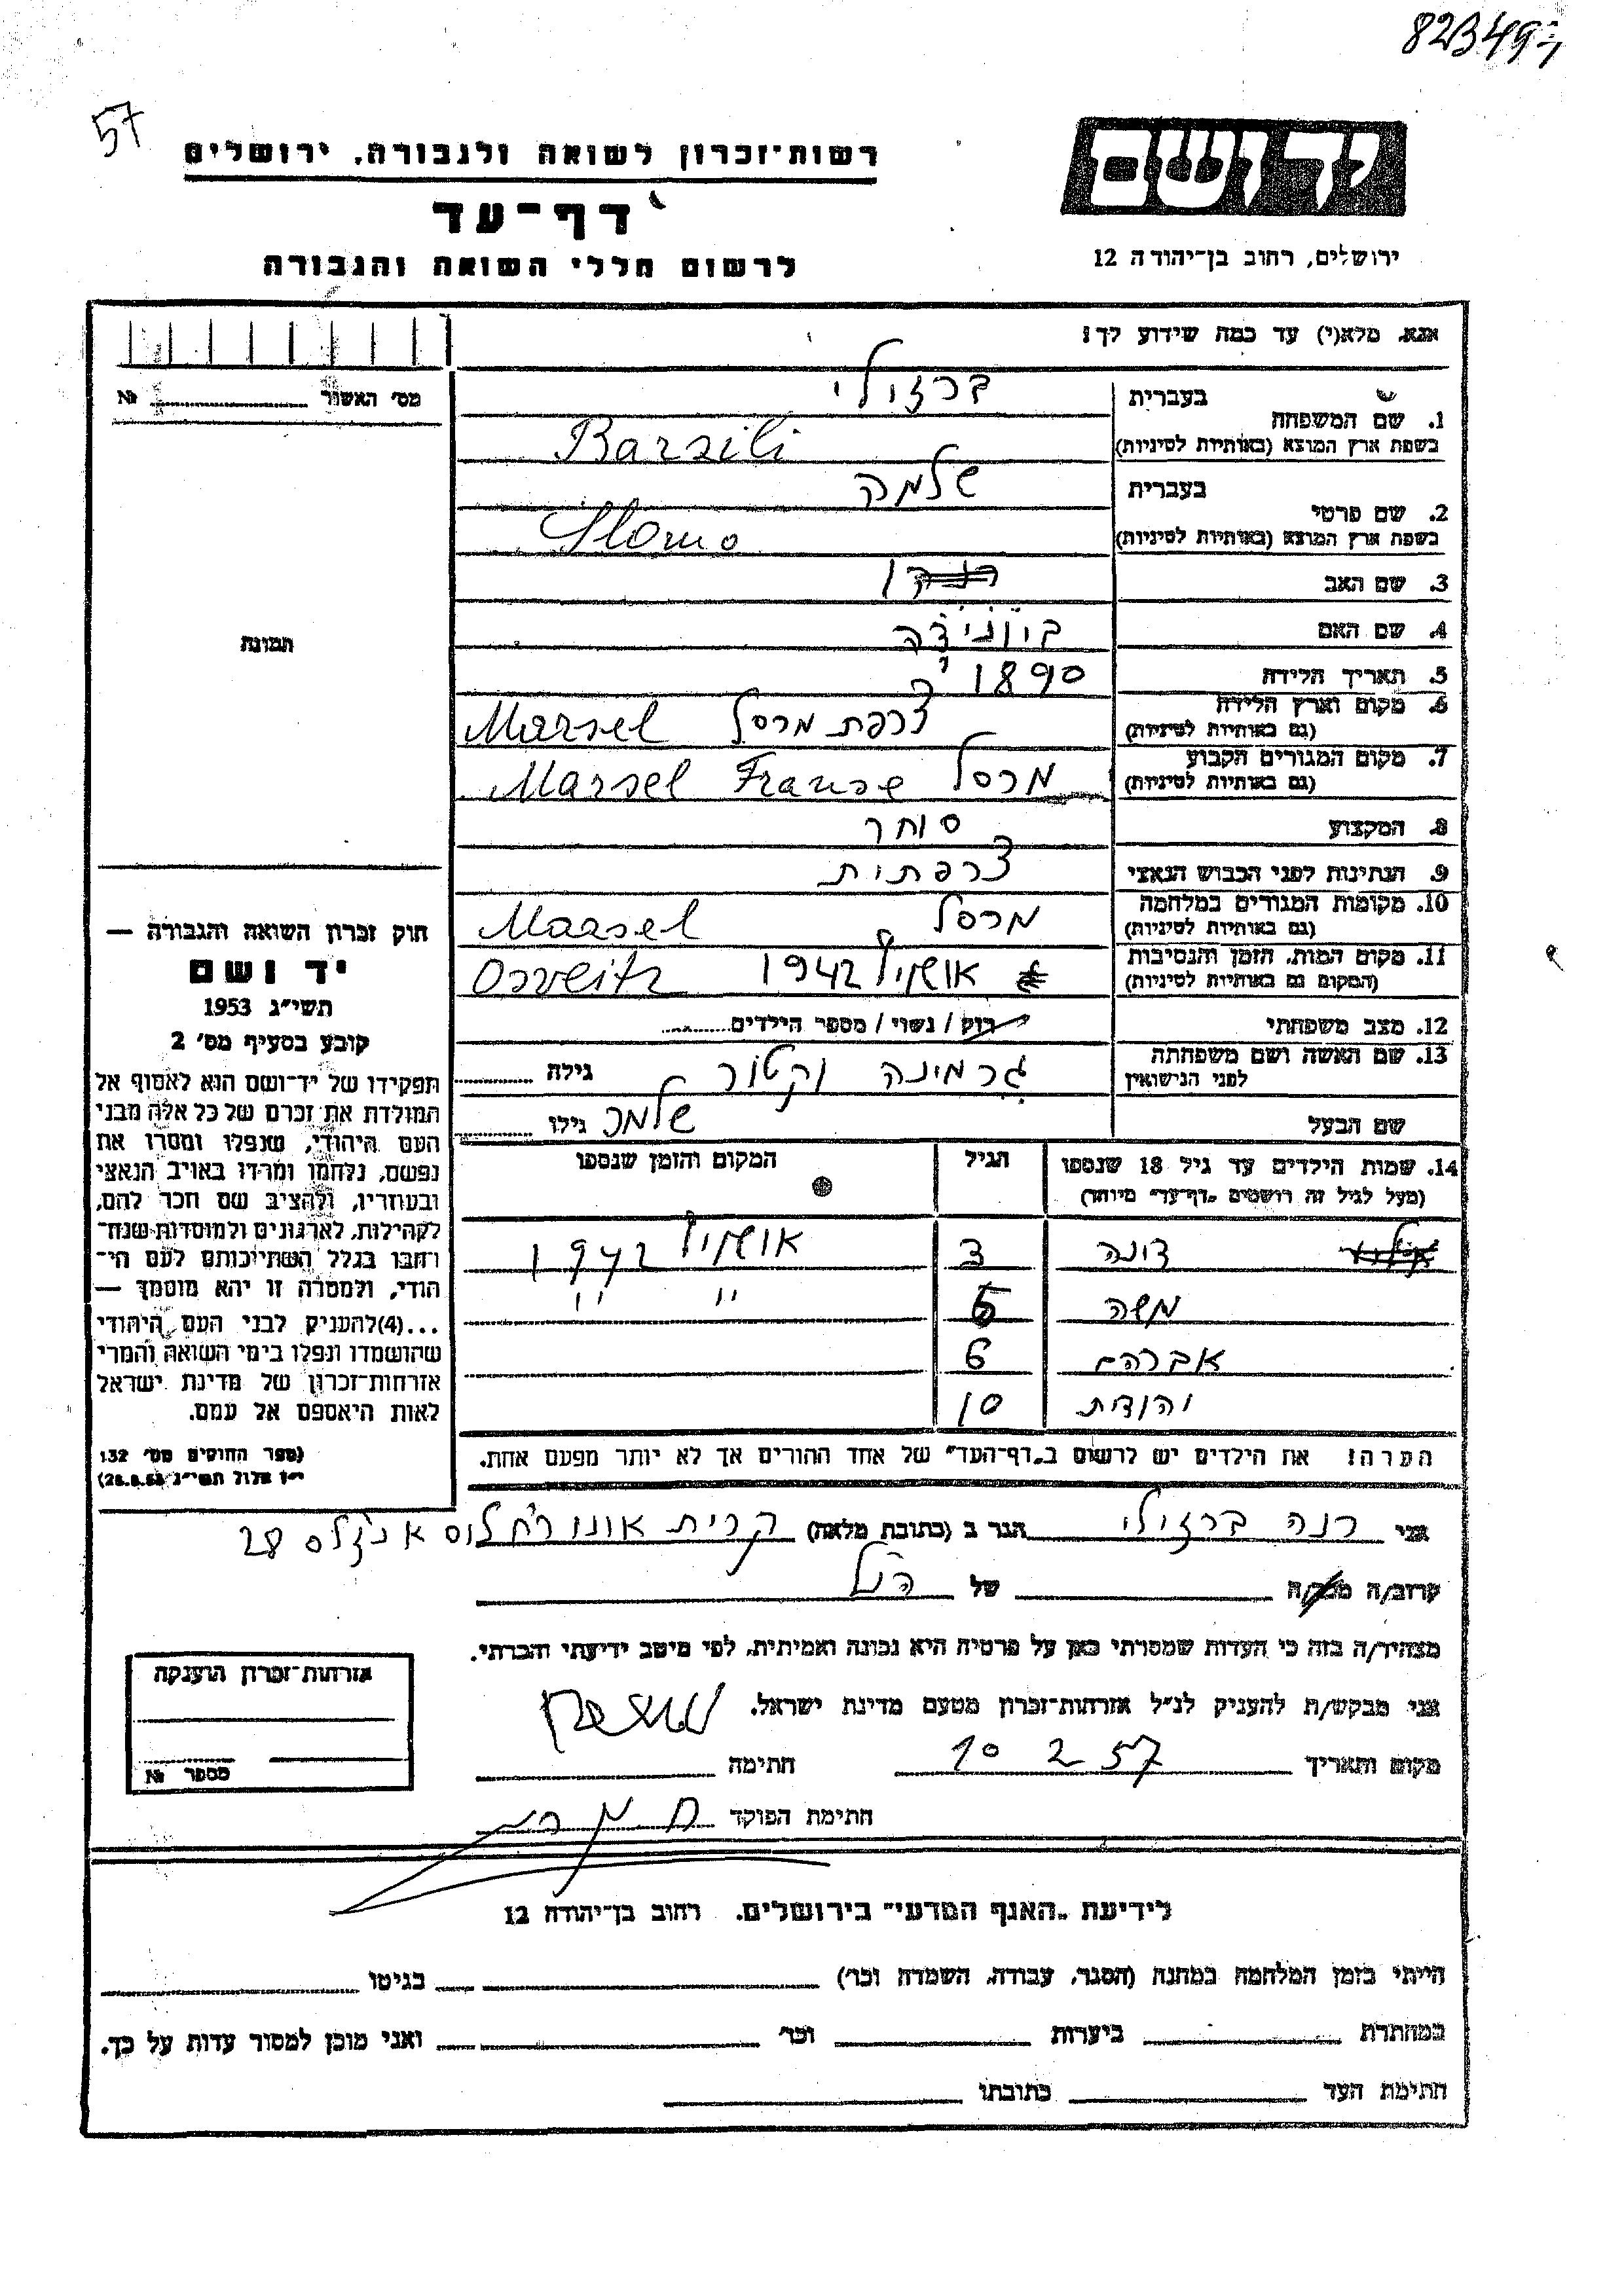 823497
57
יד ושם
ירושלים, רחוב בן־יהודה 12
רשות־זכרון לשואה ולגבורה, ירושלים
דף־עד
לרשום חללי השואה והגבורה
אנא, מלא(י) עד כמה שידוע לך!
מס׳ האשור № 
1. שם המשפחה בעברית ברזולי
בשפת ארץ המוצא (באותיות לטיניות) Barzili
2. שם פרטי בעברית שלמה
בשפת ארץ המוצא (באותיות לטיניות) Slomo
3. שם האב
4. שם האם
5. תאריך הלידה 1890
6. מקום וארץ הלידה (גם באותיות לטיניות) צרפת מרסל Marsel
7. מקום המגורים הקבוע (גם באותיות לטיניות) מרסל Marsel Franse
8. המקצוע סוחר
9. הנתינות לפני הכבוש הנאצי צרפתית
10. מקומות המגורים במלחמה (גם באותיות לטיניות) מרסל Marsel
11. מקום המות, הזמן והנסיבות (המקום גם באותיות לטיניות) 1942 Osveitz
12. מצב משפחתי רוק / נשוי / מספר הילדים
13. שם האשה ושם משפחתה לפני הנישואין גרמינה וקטור גילה
שם הבעל שלמה גילו
14. שמות הילדים עד גיל 18 שנספו (מעל לגיל זה רושמים „דף־עד״ מיוחד) הגיל המקום והזמן שנספו
דונה 3 1942
משה 5 " "
אברהם 6
יהודית 10
הערה! את הילדים יש לרשום ב„דף־העד״ של אחד ההורים אך לא יותר מפעם אחת.
תמונת
חוק זכרון השואה והגבורה —
יד ושם
תשי״ג 1953
קובע בסעיף מס׳ 2
תפקידו של יד־ושם הוא לאסוף אל
המולדת את זכרם של כל אלה מבני
העם היהודי, שנפלו ומסרו את
נפשם, נלחמו ומרדו באויב הנאצי
ובעוזריו, ולהציב שם וזכר להם,
לקהילות, לארגונים ולמוסדות שנח־
רחבו בגלל השתייכותם לעם הי־
הודי, ולמטרה זו יהא מוסמך —
...(4)להעניק לבני העם היהודי
שהושמדו ונפלו בימי השואה והמרי
אזרחות־זכרון של מדינת ישראל
לאות היאספם אל עמם.
(ספר החוקים מס׳ 132
י״ז אלול תשי״ג 28.8.53)
אני רנה ברזולי הגר ב (כתובת מלאה) קרית אונו רח לוס אנזלס 28
קרוב/ה מכר/ה של הנ״ל
מצהיר/ה בזה כי העדות שמסרתי כאן על פרטיה היא נכונה ואמיתית, לפי מיטב ידיעתי והכרתי.
אני מבקש/ת להעניק לנ״ל אזרחות־זכרון מטעם מדינת ישראל.
מקום ותאריך 10 2 57 חתימה
חתימת הפוקד
אזרחות־זכרון הוענקה
מספר №
לידיעת „האגף המדעי״ בירושלים. רחוב בן־יהודה 12
הייתי בזמן המלחמה במחנה (הסגר, עבודה, השמדה וכו׳) בגיטו
במחתרת ביערות וכו׳ ואני מוכן למסור עדות על כך.
חתימת העד כתובתו